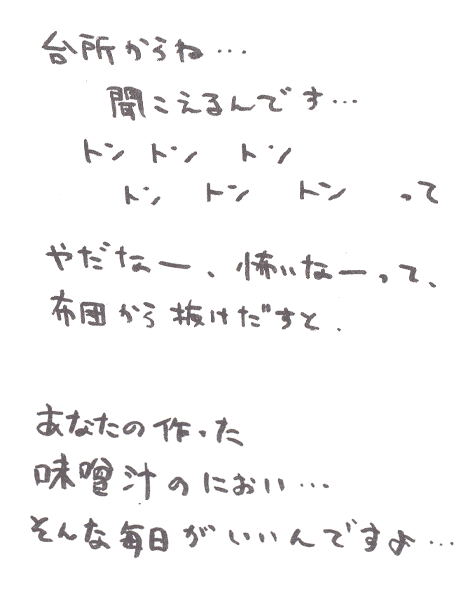 台所からね…
聞こえるんです…
トン トン トン
トン トン トン って
やだなー、怖いなーって、
布団から抜けだすと、
あなたの作った
味噌汁のにおい…
そんな毎日がいいんですよ…